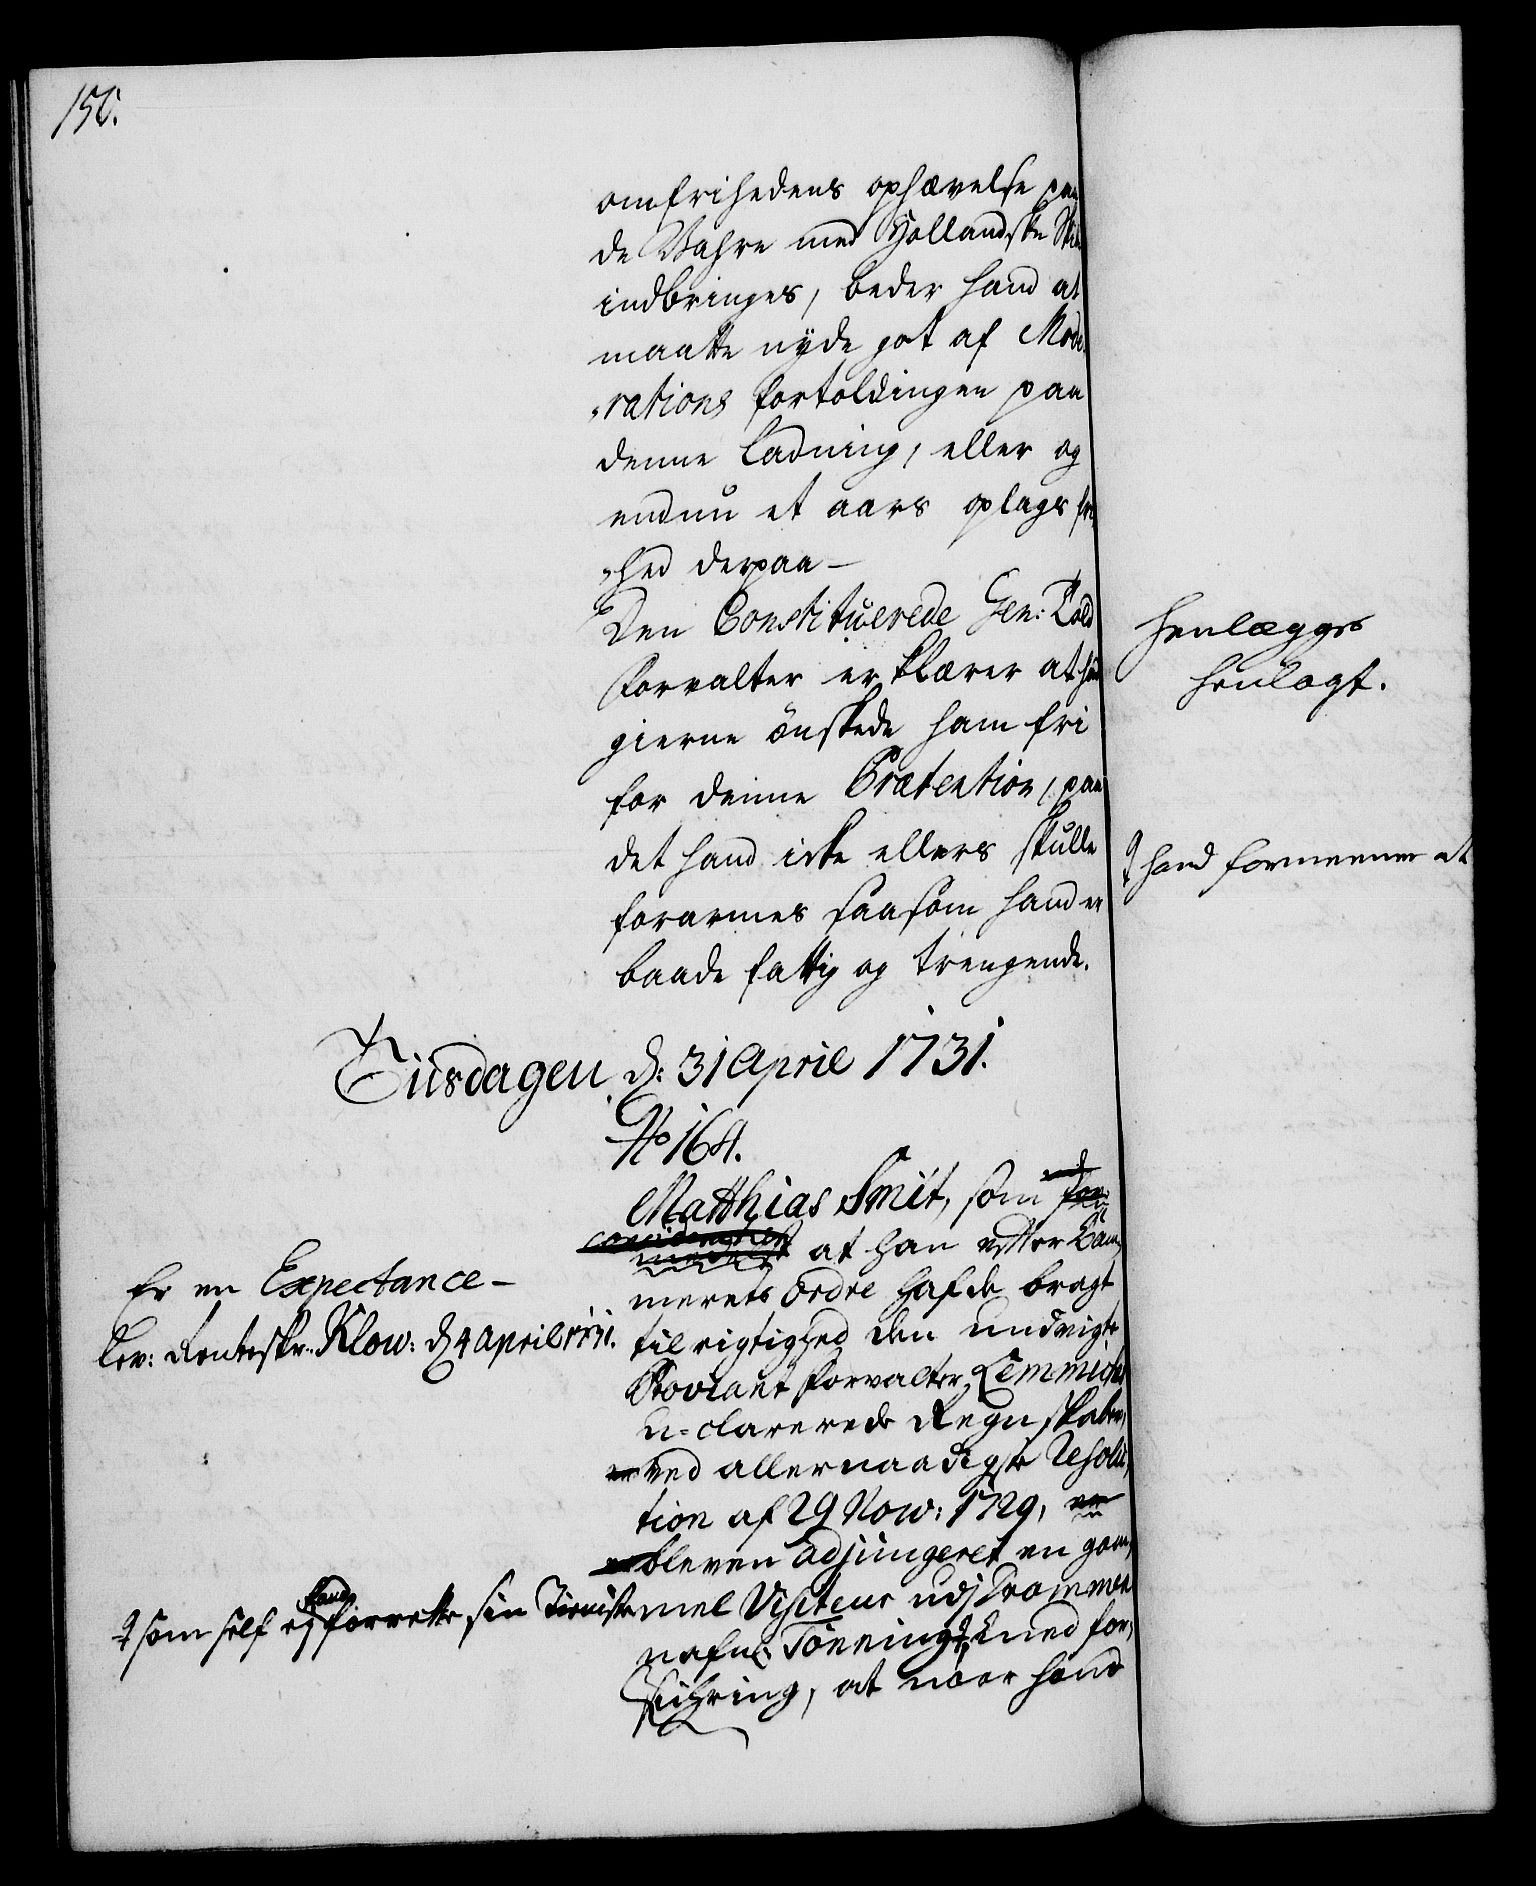 150.
om frihedens ophævelse paa
de Wahre med Hollandske Skibe
indbringes, beder hand at
maatte nyde got af Mode-
rations fortoldingen paa
denne Ladning, eller og
endnu et aars oplags fri-
hed derpaa -
Den Constituerede Gen: Told
forvalter erklærer at hand
gierne ønskede ham fri
for denne Prætention, paa
det hand icke ellers skulle
forarmes saasom hand er
baade fattig og trengende.
Henlægges
henlagt.
hand formeener at
Tiisdagen d: 31 April 1731.
No 164.
Matthias Smit, som
at han efter Cam-
merets ordre hafde bragt
til rigtighed den undvigte
Proviant forvalter Lemmichs
u-clarerede Regnskaber,
ved allernaadigste Resolu-
tion af 29 Nov: 1729,
bleven adjungeret en gam-
mel Visiteur udj Drammen
nafnl: Tønning med for-
sichring, at naar hand
Er en Expectance -
Lev: Renteskr: Klow: d 4 April 1731.
som self ej kand forrette sin Tieniste